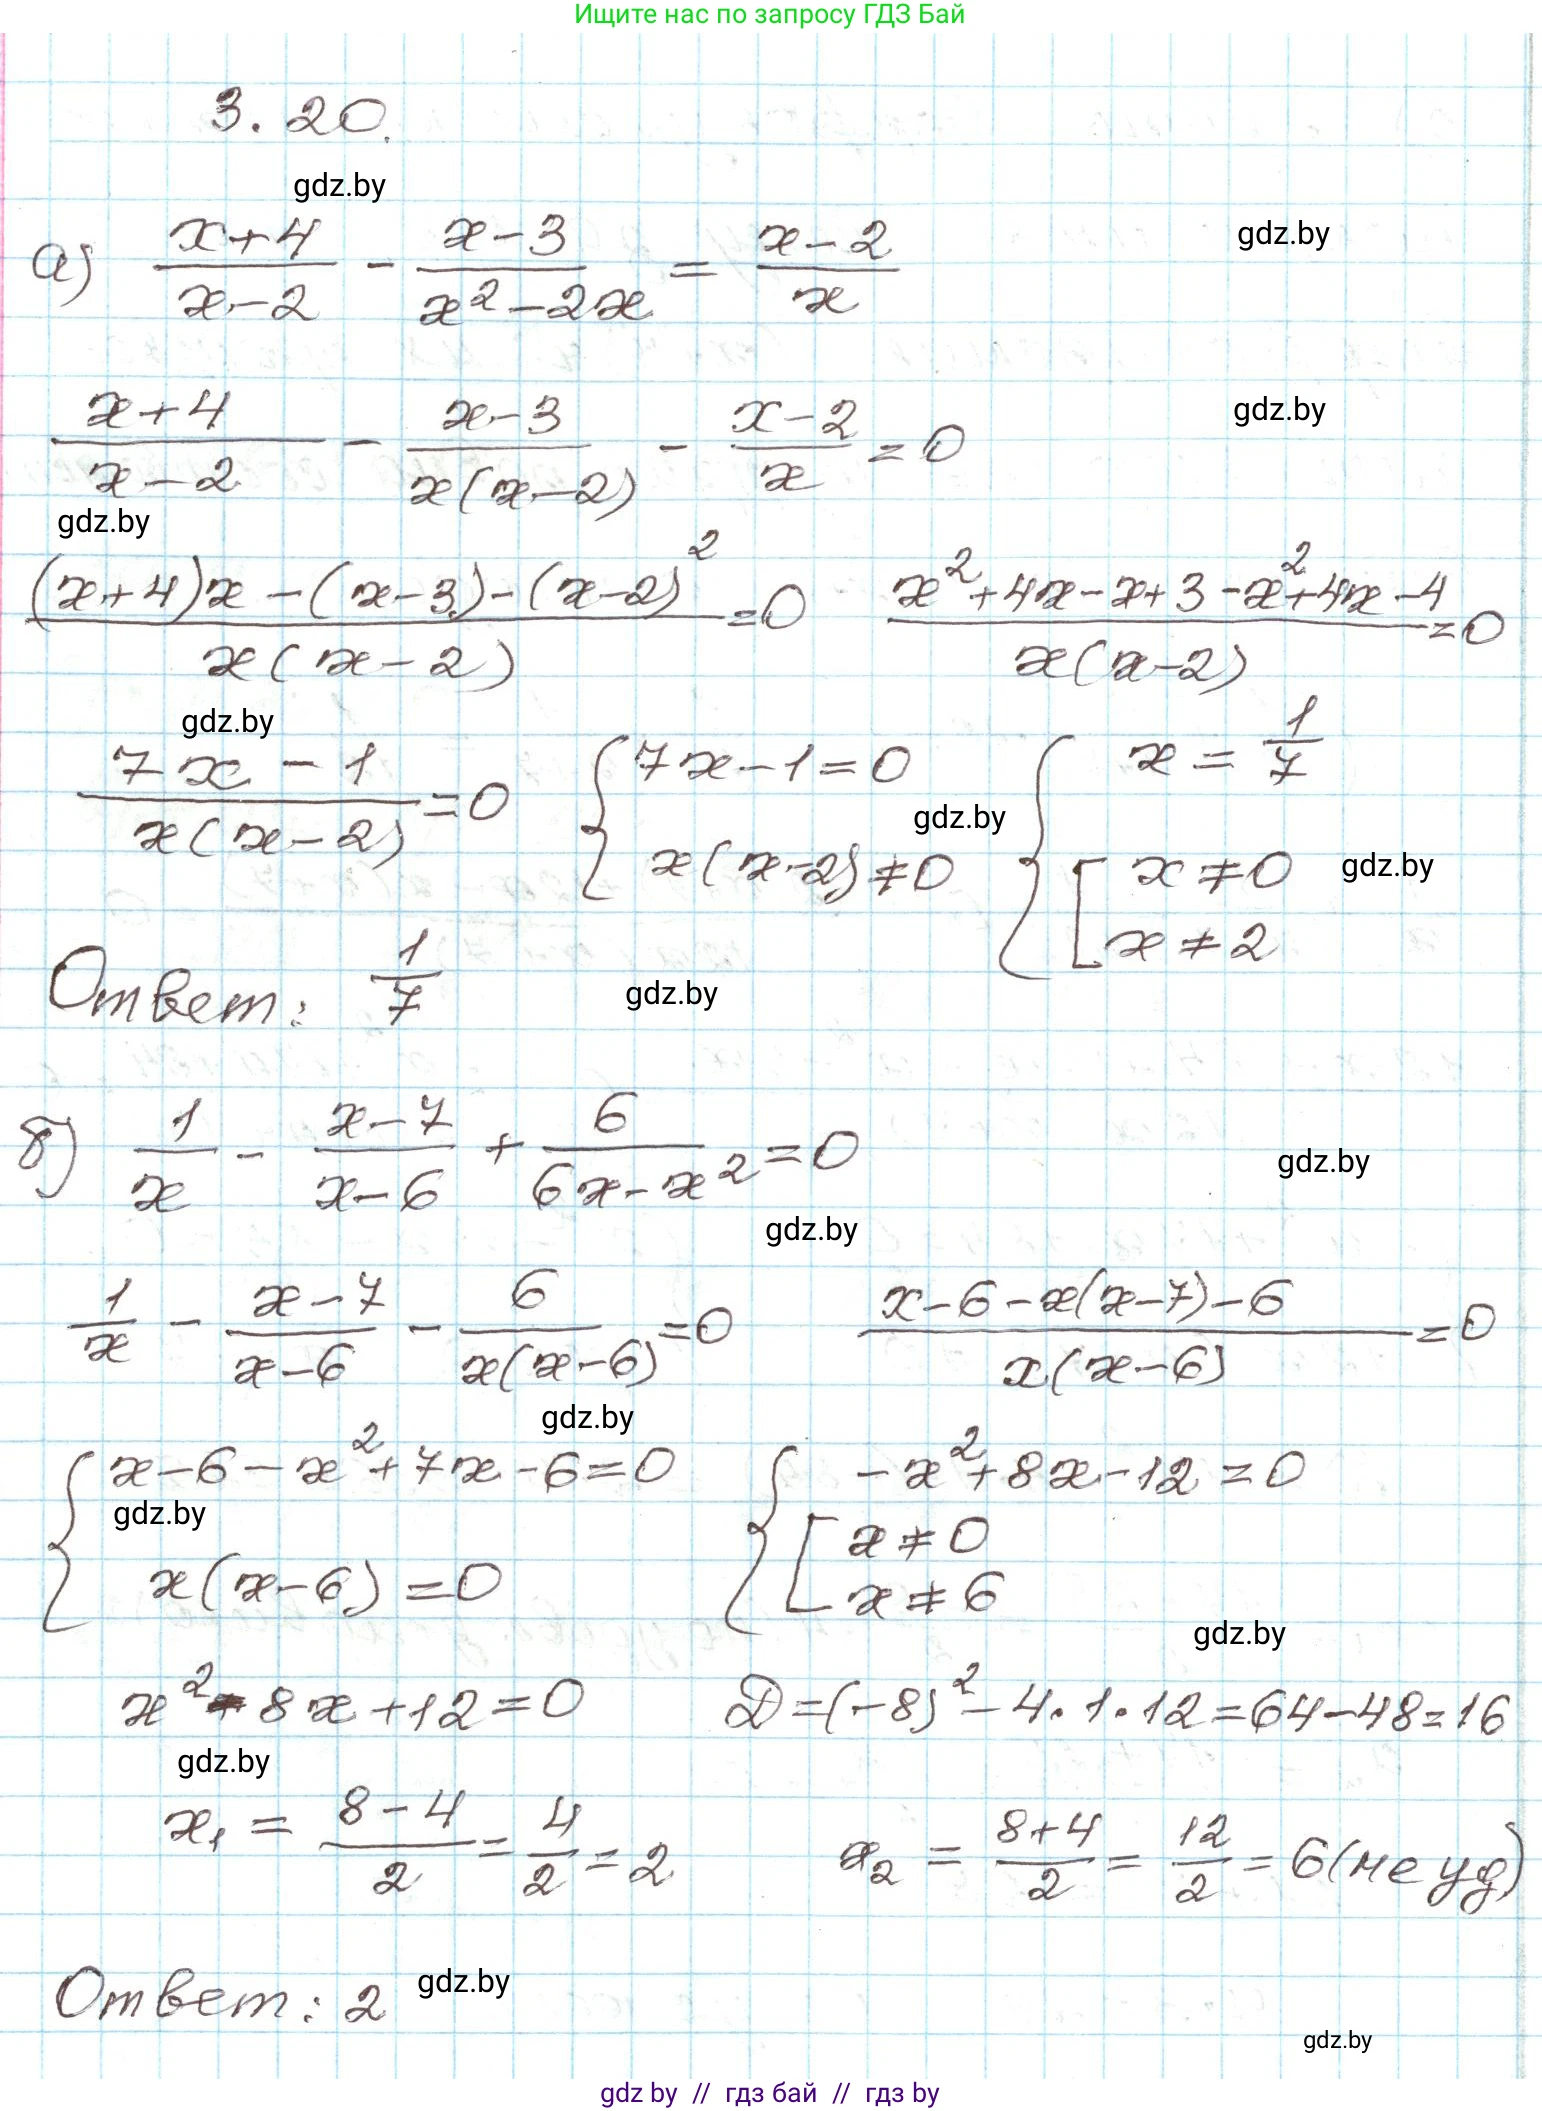 Ищите нас по запросу ГДЗ Бай
3.20.
gdz.by
а) (x+4)/(x-2) - (x-3)/(x²-2x) = (x-2)/x
gdz.by
(x+4)/(x-2) - (x-3)/(x(x-2)) - (x-2)/x = 0
gdz.by
gdz.by
((x+4)x-(x-3)-(x-2)²)/(x(x-2)) = 0 (x²+4x-x+3-x²+4x-4)/(x(x-2)) = 0
gdz.by
(7x-1)/(x(x-2)) = 0 { 7x-1=0 { x = 1/7
gdz.by
x(x-2)≠0 [ x≠0
gdz.by
x≠2
Ответ: 1/7
gdz.by
б) 1/x - (x-7)/(x-6) + 6/(6x-x²) = 0
gdz.by
gdz.by
1/x - (x-7)/(x-6) - 6/(x(x-6)) = 0 (x-6-x(x-7)-6)/(x(x-6)) = 0
gdz.by
{ x-6-x²+7x-6=0 { -x²+8x-12=0
gdz.by
[ x≠0
x(x-6)=0 x≠6
gdz.by
x²-8x+12=0 D=(-8)²-4·1·12=64-48=16
gdz.by
x₁ = (8-4)/2 = 4/2 = 2 x₂ = (8+4)/2 = 12/2 = 6(не уд)
Ответ: 2
gdz.by
gdz.by
gdz by // гдз бай // гдз by